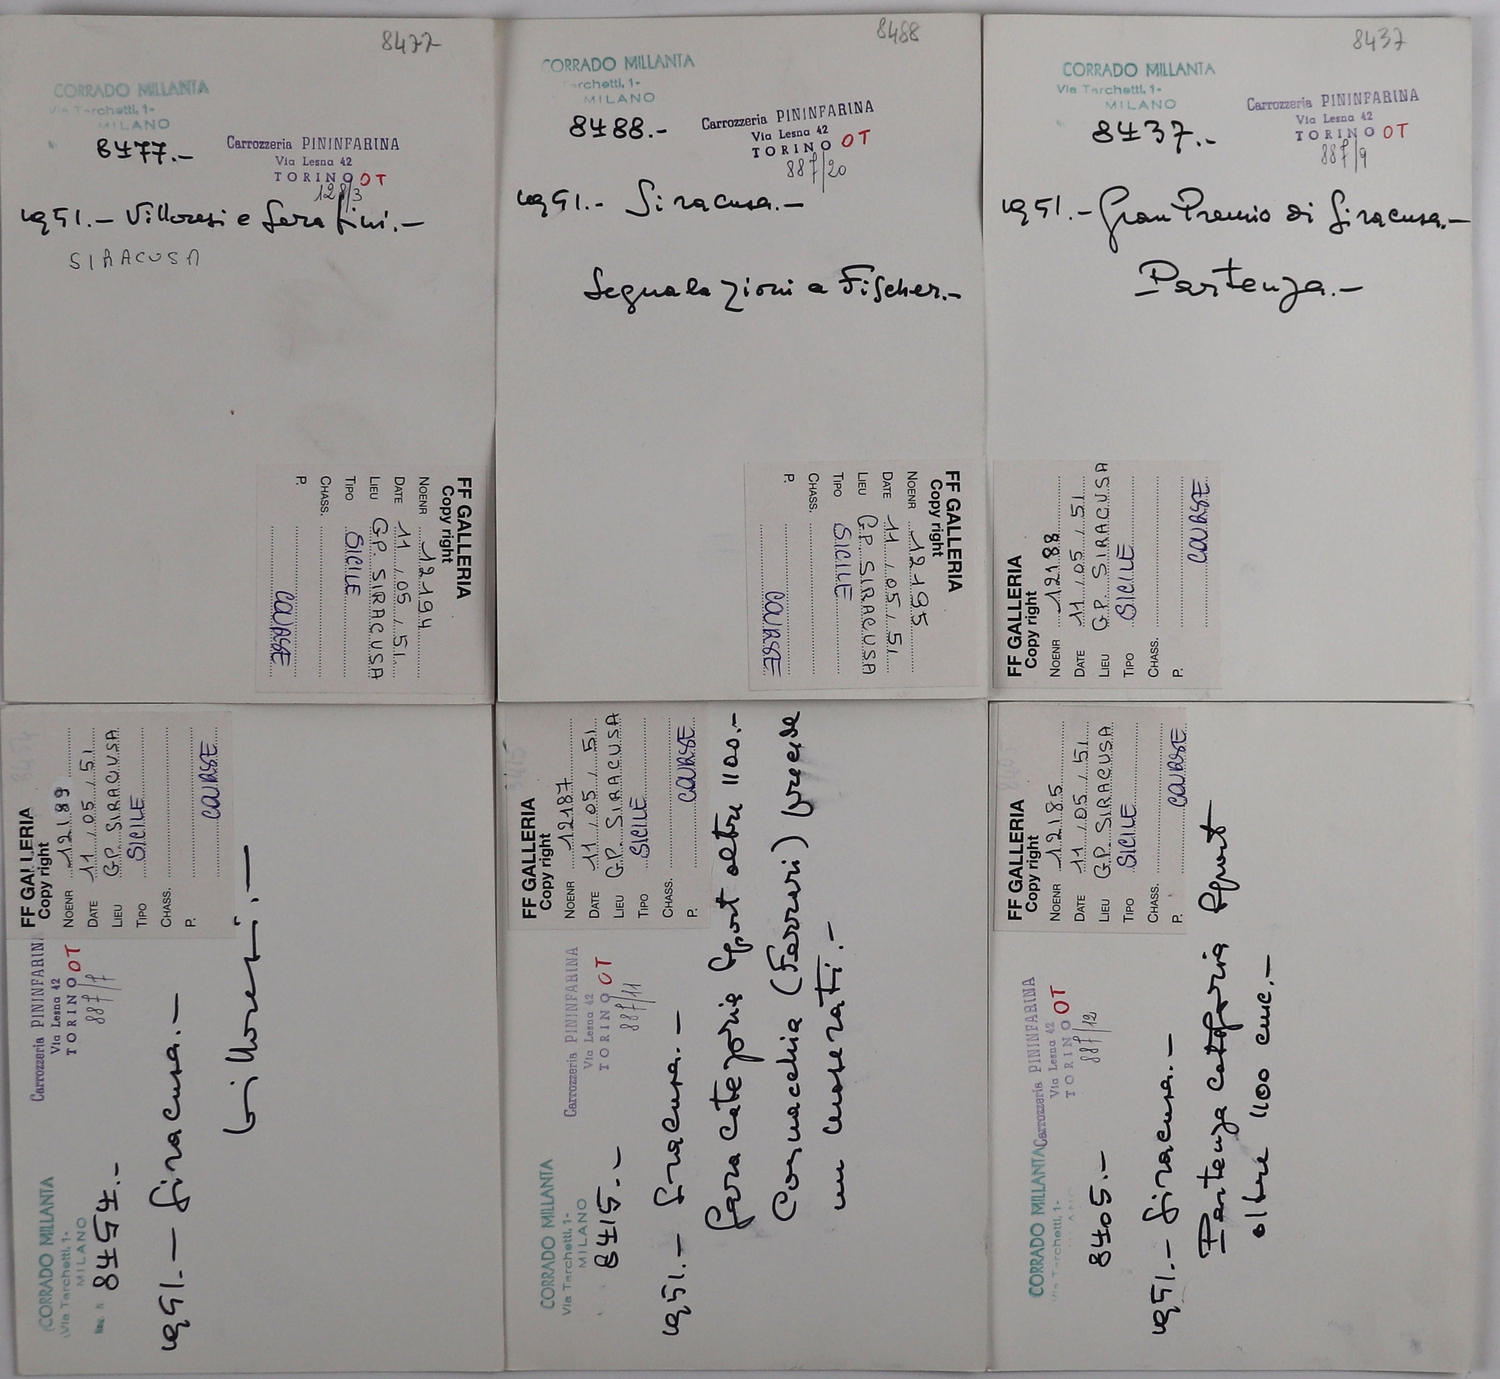 8477
CORRADO MILLANTA
Via Tarchetti, 1-
MILANO
8477.-
Carrozzeria PININFARINA
Via Lesna 42
TORINO OT
128/3
1951.- Villoresi e Serafini.-
SIRACUSA
FF GALLERIA
Copy right
NOENR 12194
DATE 11/05/51
LIEU G.P. SIRACUSA
TIPO SICILE
CHASS.
P.
COURSE
8488
CORRADO MILLANTA
Tarchetti, 1-
MILANO
8488.-
Carrozzeria PININFARINA
Via Lesna 42
TORINO OT
887/20
1951.- Siracusa.-
Segnalazioni a Fischer.-
FF GALLERIA
Copy right
NOENR 12195
DATE 11/05/51
LIEU G.P. SIRACUSA
TIPO SICILE
CHASS.
P.
COURSE
8437
CORRADO MILLANTA
Via Tarchetti, 1-
MILANO
8437.-
Carrozzeria PININFARINA
Via Lesna 42
TORINO OT
887/9
1951.- Gran Premio di Siracusa.-
Partenza.-
FF GALLERIA
Copy right
NOENR 12188
DATE 11/05/51
LIEU G.P. SIRACUSA
TIPO SICILE
CHASS.
P.
COURSE
FF GALLERIA
Copy right
NOENR 12189
DATE 11/05/51
LIEU G.P. SIRACUSA
TIPO SICILE
CHASS.
P.
COURSE
Carrozzeria PININFARINA
Via Lesna 42
TORINO OT
887/7
CORRADO MILLANTA
Via Tarchetti, 1-
MILANO
8454.-
1951.- Siracusa.-
Villoresi.-
FF GALLERIA
Copy right
NOENR 12187
DATE 11/05/51
LIEU G.P. SIRACUSA
TIPO SICILE
CHASS.
P.
COURSE
Carrozzeria PININFARINA
Via Lesna 42
TORINO OT
887/11
CORRADO MILLANTA
Via Tarchetti, 1-
MILANO
8415.-
1951.- Siracusa.-
Gara categoria Sport oltre 1100.-
Cornacchia (Ferrari) precede
una maserati.-
FF GALLERIA
Copy right
NOENR 12185
DATE 11/05/51
LIEU G.P. SIRACUSA
TIPO SICILE
CHASS.
P.
COURSE
Carrozzeria PININFARINA
Via Lesna 42
TORINO OT
887/12
CORRADO MILLANTA
Via Tarchetti, 1-
8405.-
1951.- Siracusa.-
Partenza categoria Sport
oltre 1100 cmc.-